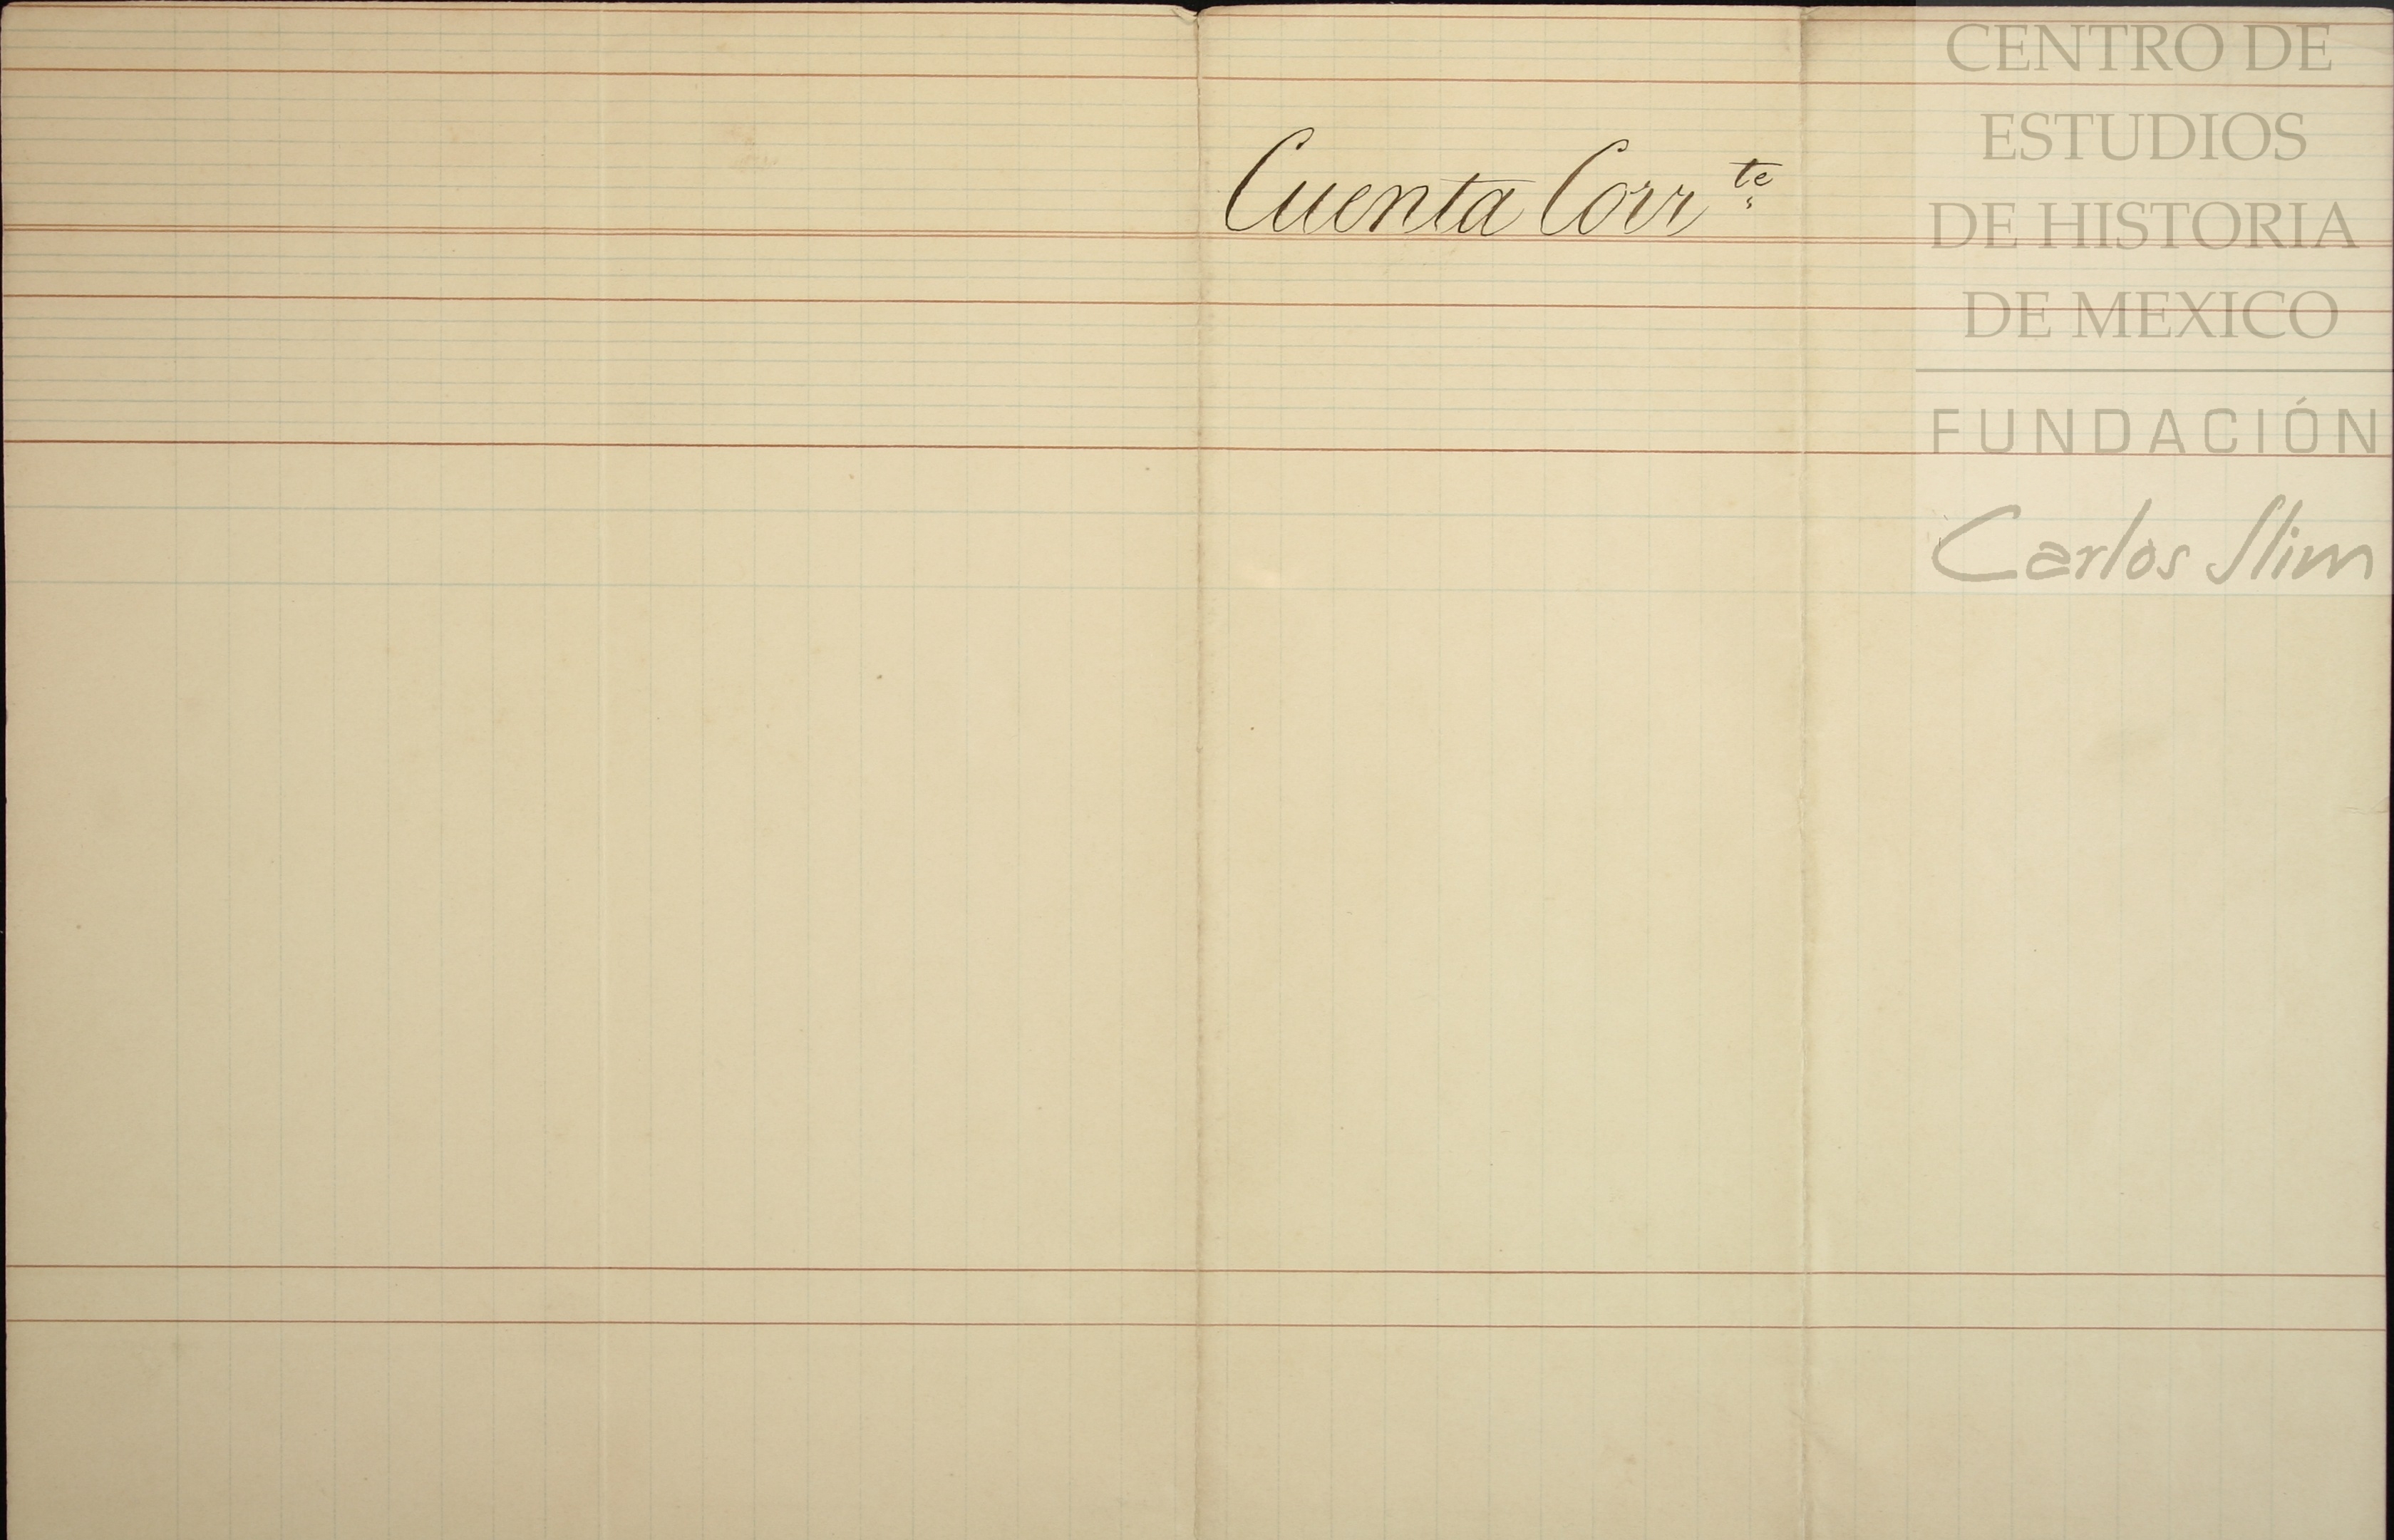 Cuenta Corr.te
CENTRO DE
ESTUDIOS
DE HISTORIA
DE MEXICO
FUNDACIÓN
Carlos Slim